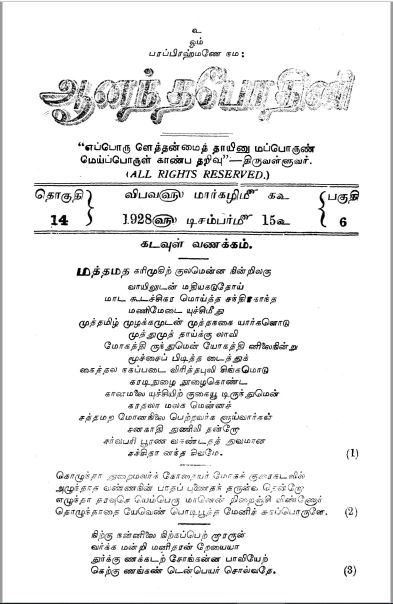 உ
ஓம்
பரப்பிரஹ்மணே நம:
ஆனந்தபோதினி
"எப்பொரு ளெத்தன்மைத் தாயினு மப்பொருண்
மெய்ப்பொருள் காண்ப தறிவு"—திருவள்ளுவர்.
(ALL RIGHTS RESERVED.)
தொகுதி 14
விபவ௵ மார்கழி௴ ௧௳
1928௵ டிசம்பர்௴ 15௳
பகுதி 6
கடவுள் வணக்கம்.
மத்தமத கரிமுகிற் குலமென்ன நின்றிலகு
வாயிலுடன் மதியகடுதோய்
மாட கூடச்சிகர மொய்த்த சந்திரகாந்த
மணிமேடை யுச்சிமீது
முத்தமிழ் முழக்கமுடன் முத்தநகை யார்களொடு
முத்துமுத் தாய்க்கு லாவி
மோகத்தி ருந்துமென் யோகத்தி னிலைநின்று
மூச்சைப் பிடித்த டைத்துக்
கைத்தல நகப்படை விரித்தபுலி சிங்கமொடு
கரடிநுழை நூழைகொண்ட
கானமலை யுச்சியிற் குகையூ டிருந்துமென்
கரதலா மலக மென்னச்
சத்தமற மோனநிலை பெற்றவர்க ளுய்வார்கள்
சனகாதி துணிவி தன்றோ
சர்வபரி பூரண வகண்டதத் துவமான
சச்சிதா னந்த வெமே. (1)
கொழுந்தா துறைமலர்க் கோதையர் மோகக் குரைகடலில்
அழுந்தாத வண்ணநின் பாதப் புணைதந் தருள்வ தென்றோ
எழுந்தா தரவுசெ யெம்பெரு மானென் றிறைஞ்சி விண்ணோர்
தொழுந்தாதை யேவெண் பொடிபூத்த மேனிச் சுகப்பொருளே. (2)
கிற்கு நன்னிலை நிற்கப்பெற் றாருன்
வர்க்க மன்றி மனிதரன் றேயையா
துர்க்கு ணக்கடற் சோங்கன்ன பாவியேற்
கெற்கு ணங்கண் டென்பெயர் சொல்வதே. (3)